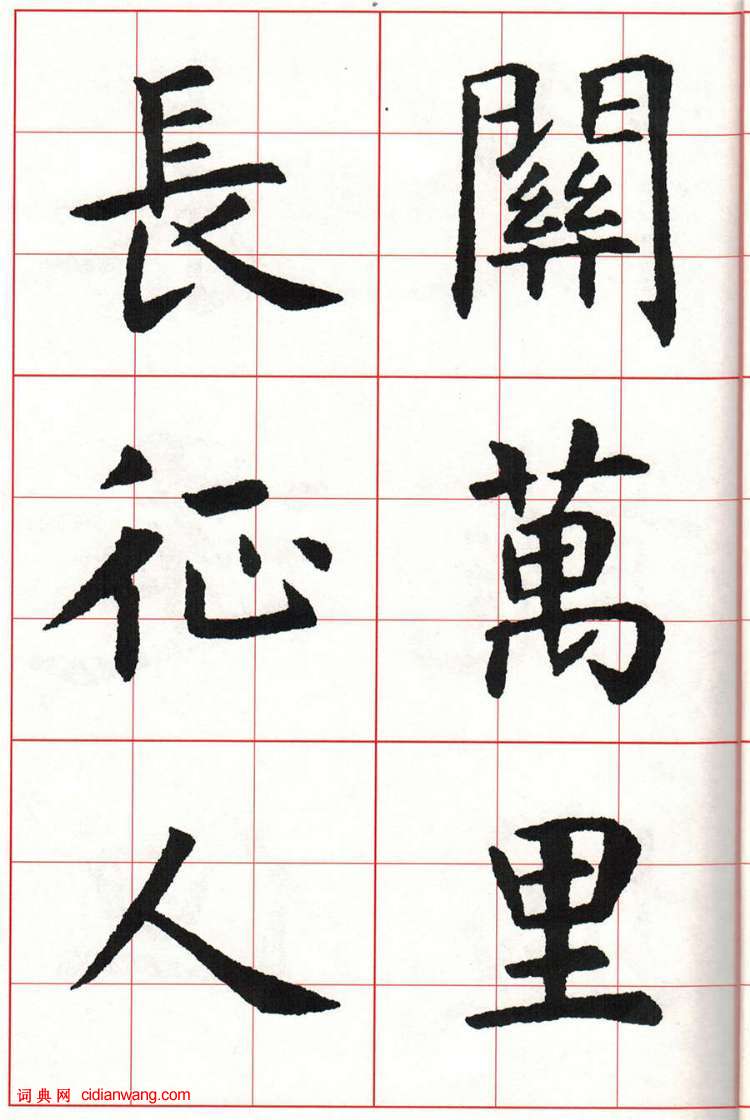 關萬里
長征人
词典网 cidianwang.com